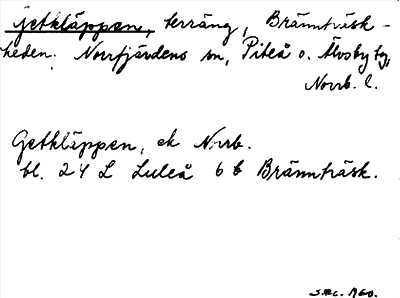 jetkläppen, terräng, Brännträsk-
heden. Norrfjärdens sn, Piteå o. Älvsby tg,
Norrb. l.
Getkläppen, ek Norrb.
bl. 24 L Luleå 6 b Brännträsk.